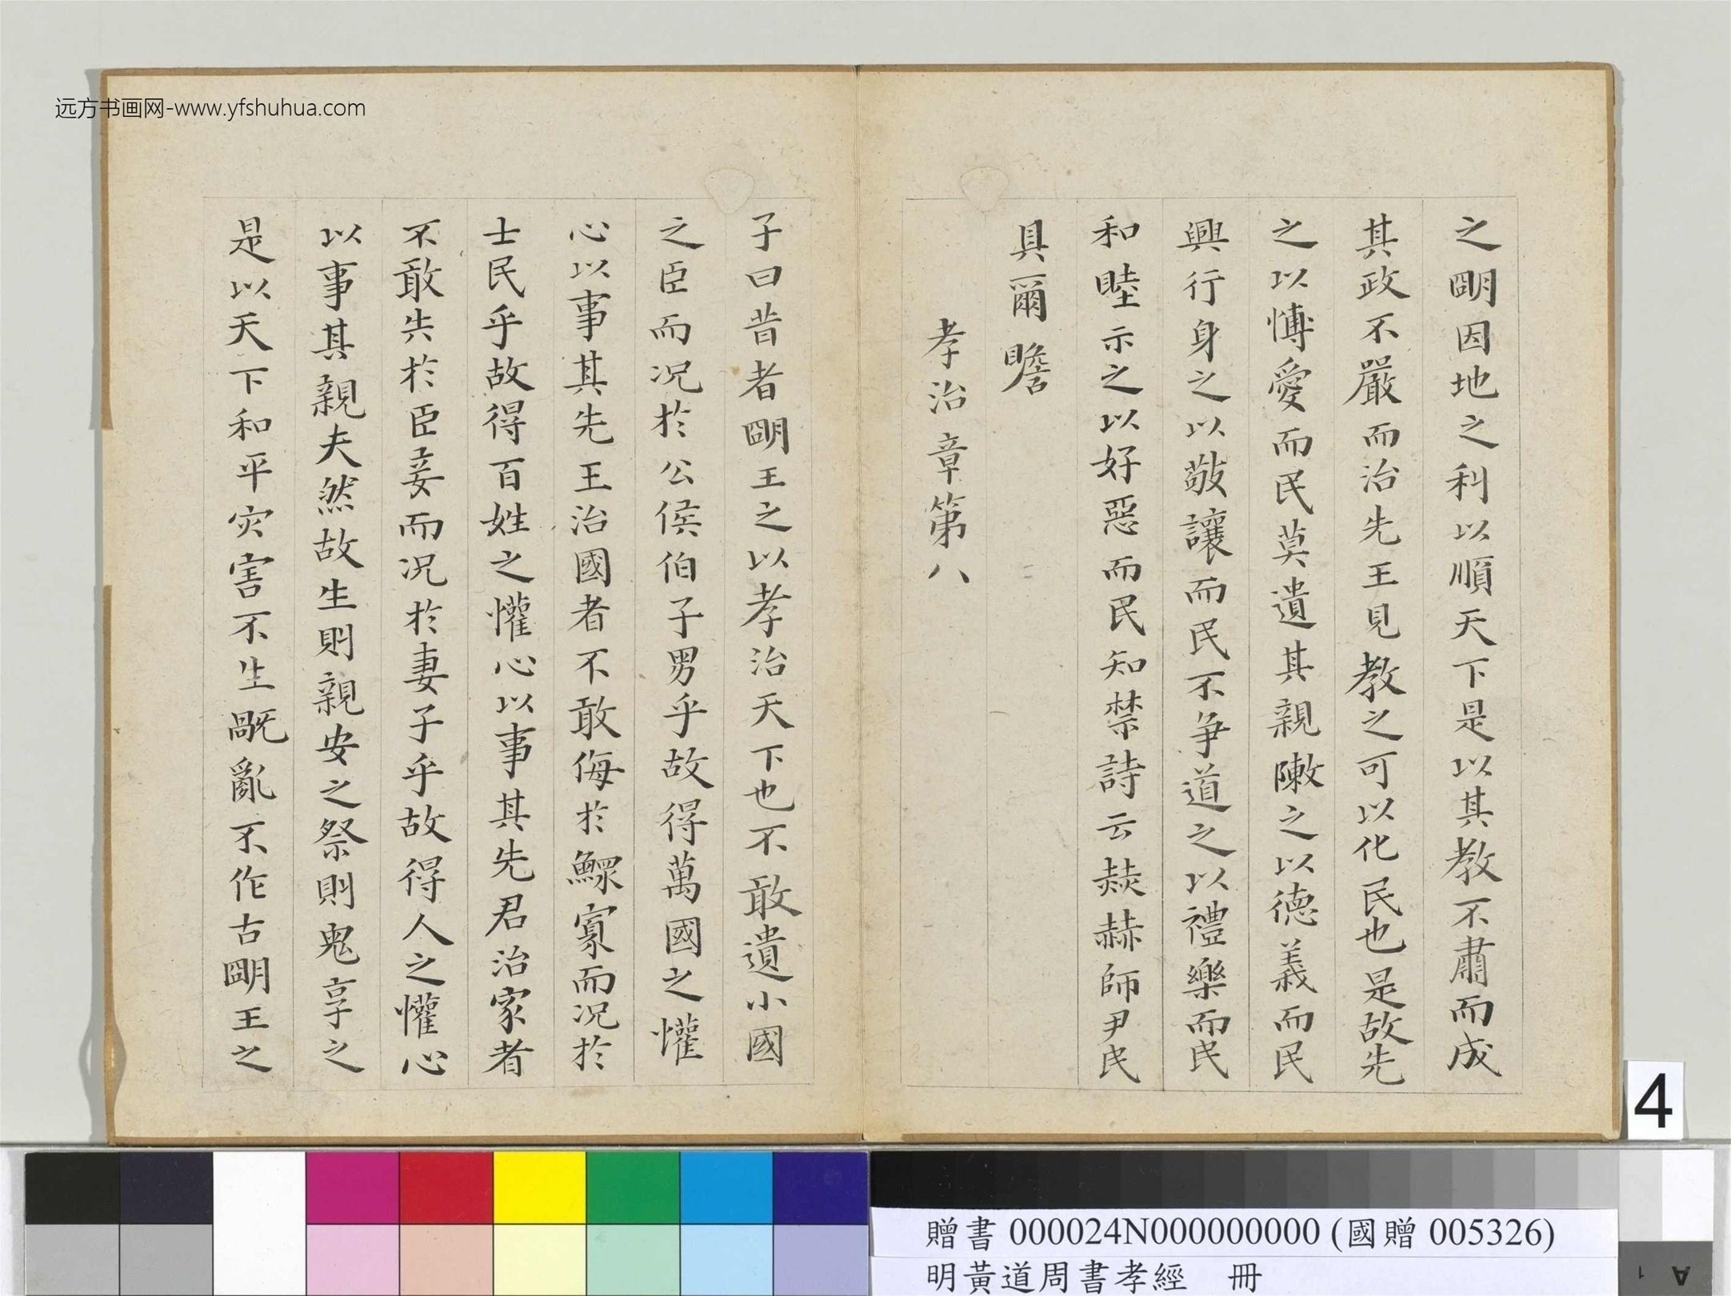 远方书画网-www.yfshuhua.com
之朙因地之利以順天下是以其教不肅而成
其政不嚴而治先王見教之可以化民也是故先
之以愽愛而民莫遺其親敶之以德義而民
興行身之以敬讓而民不争道之以禮樂而民
和睦示之以好惡而民知禁詩云赫赫師尹民
具爾瞻
孝治章第八
子曰昔者朙王之以孝治天下也不敢遺小國
之臣而况於公侯伯子男乎故得萬國之懽
心以事其先王治國者不敢侮於鰥寡而况於
士民乎故得百姓之懽心以事其先君治家者
不敢失於臣妾而况於妻子乎故得人之懽心
以事其親夫然故生則親安之祭則鬼享之
是以天下和平灾害不生禍亂不作古朙王之
4
贈書 000024N000000000 (國贈 005326)
明黃道周書孝經 冊
A 1